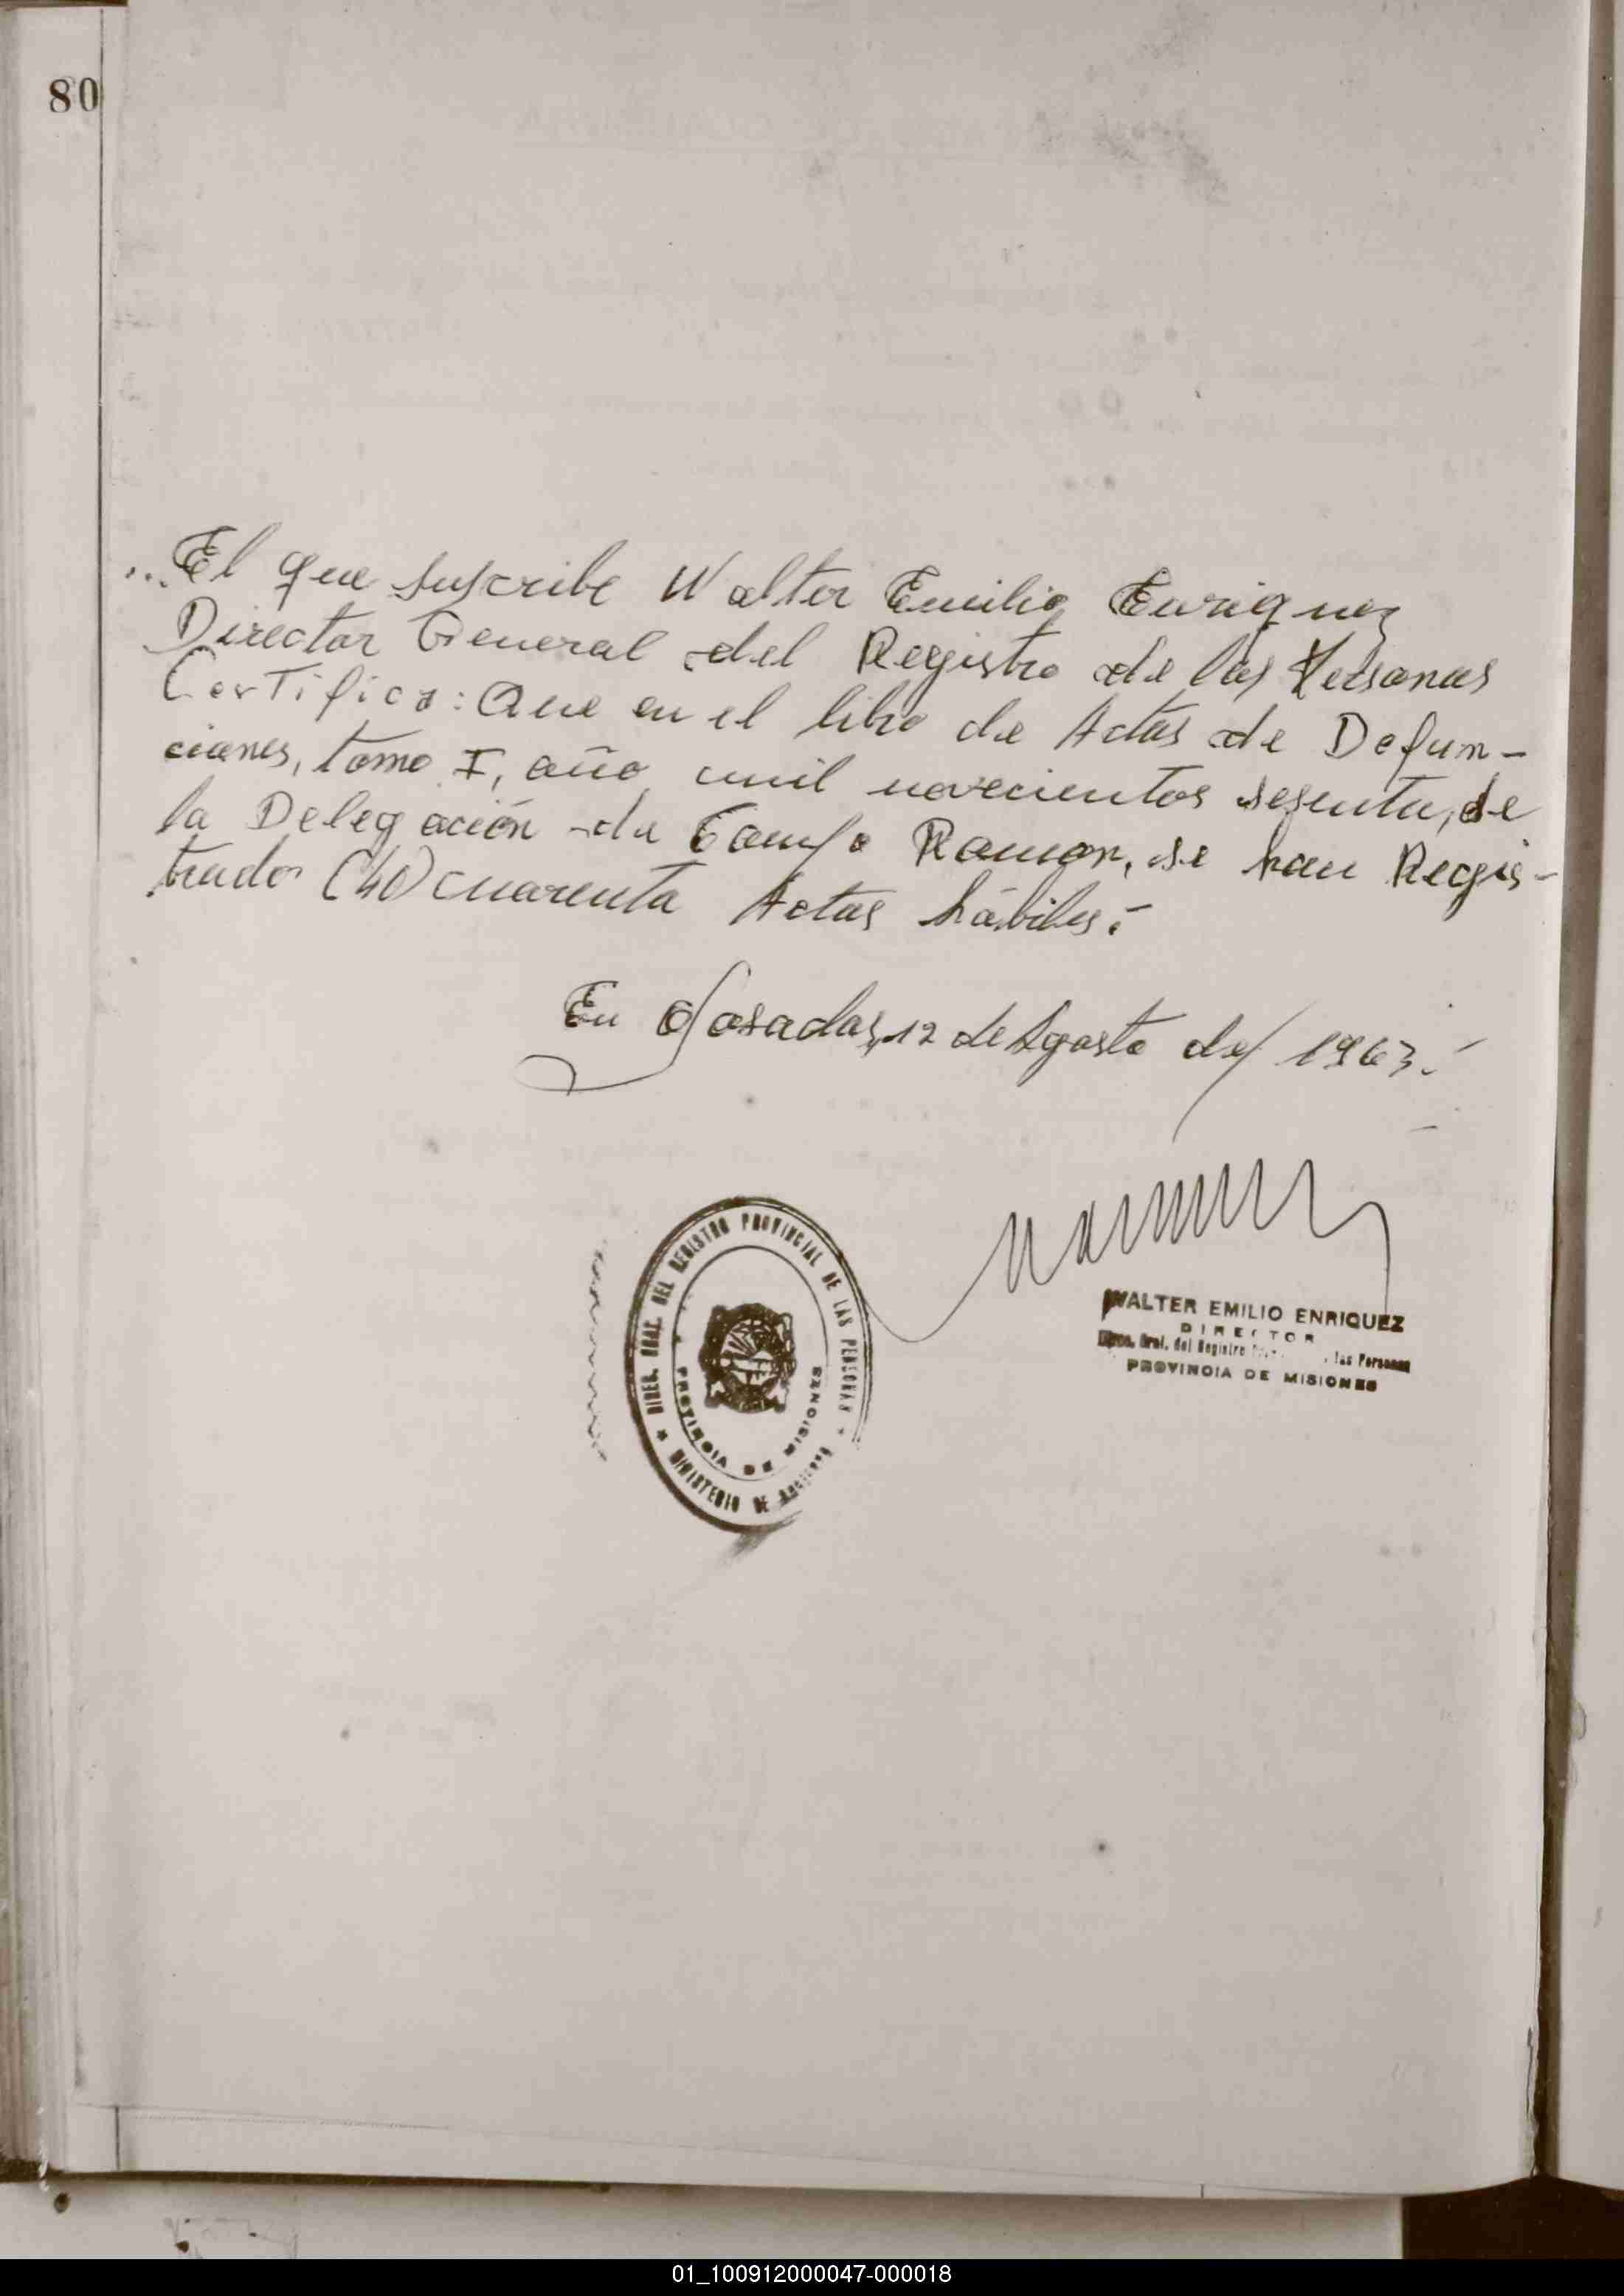 80
...El que suscribe Walter Emilio Enriquez
Director General del Registro de las Personas
Certifica: Que en el libro de Actas de Defun-
ciones, tomo I, año mil novecientos sesenta, de
la Delegación de Campo Ramon, se han Regis-
trado (40) cuarenta Actas hábiles.-
En Posadas, 12 de Agosto del 1963.-
DIREC. GRAL. DEL REGISTRO PROVINCIAL DE LAS PERSONAS
PROVINCIA DE MISIONES
MINISTERIO DE
WALTER EMILIO ENRIQUEZ
DIRECTOR
Direc. Gral. del Registro las Personas
PROVINCIA DE MISIONES
01_100912000047-000018